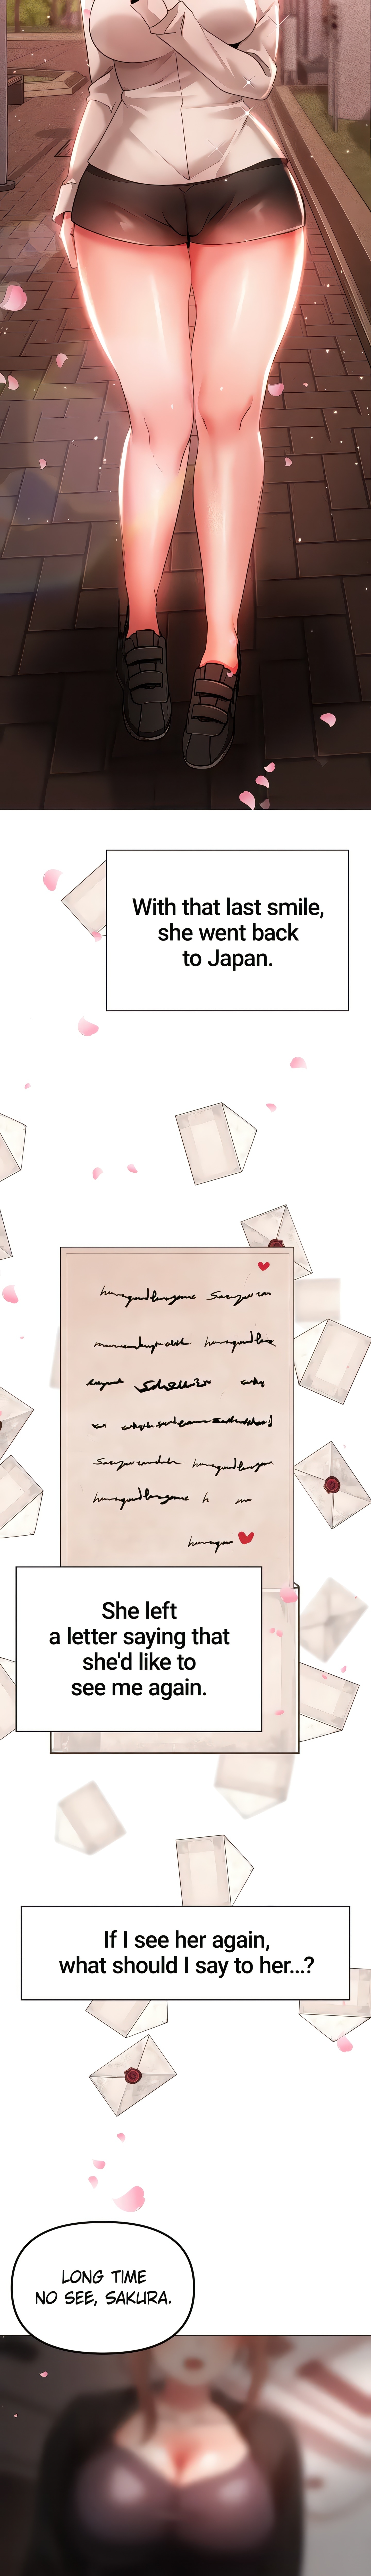 With that last smile,
she went back
to Japan.
She left
a letter saying that
she'd like to
see me again.
If I see her again,
what should I say to her...?
LONG TIME
NO SEE, SAKURA.